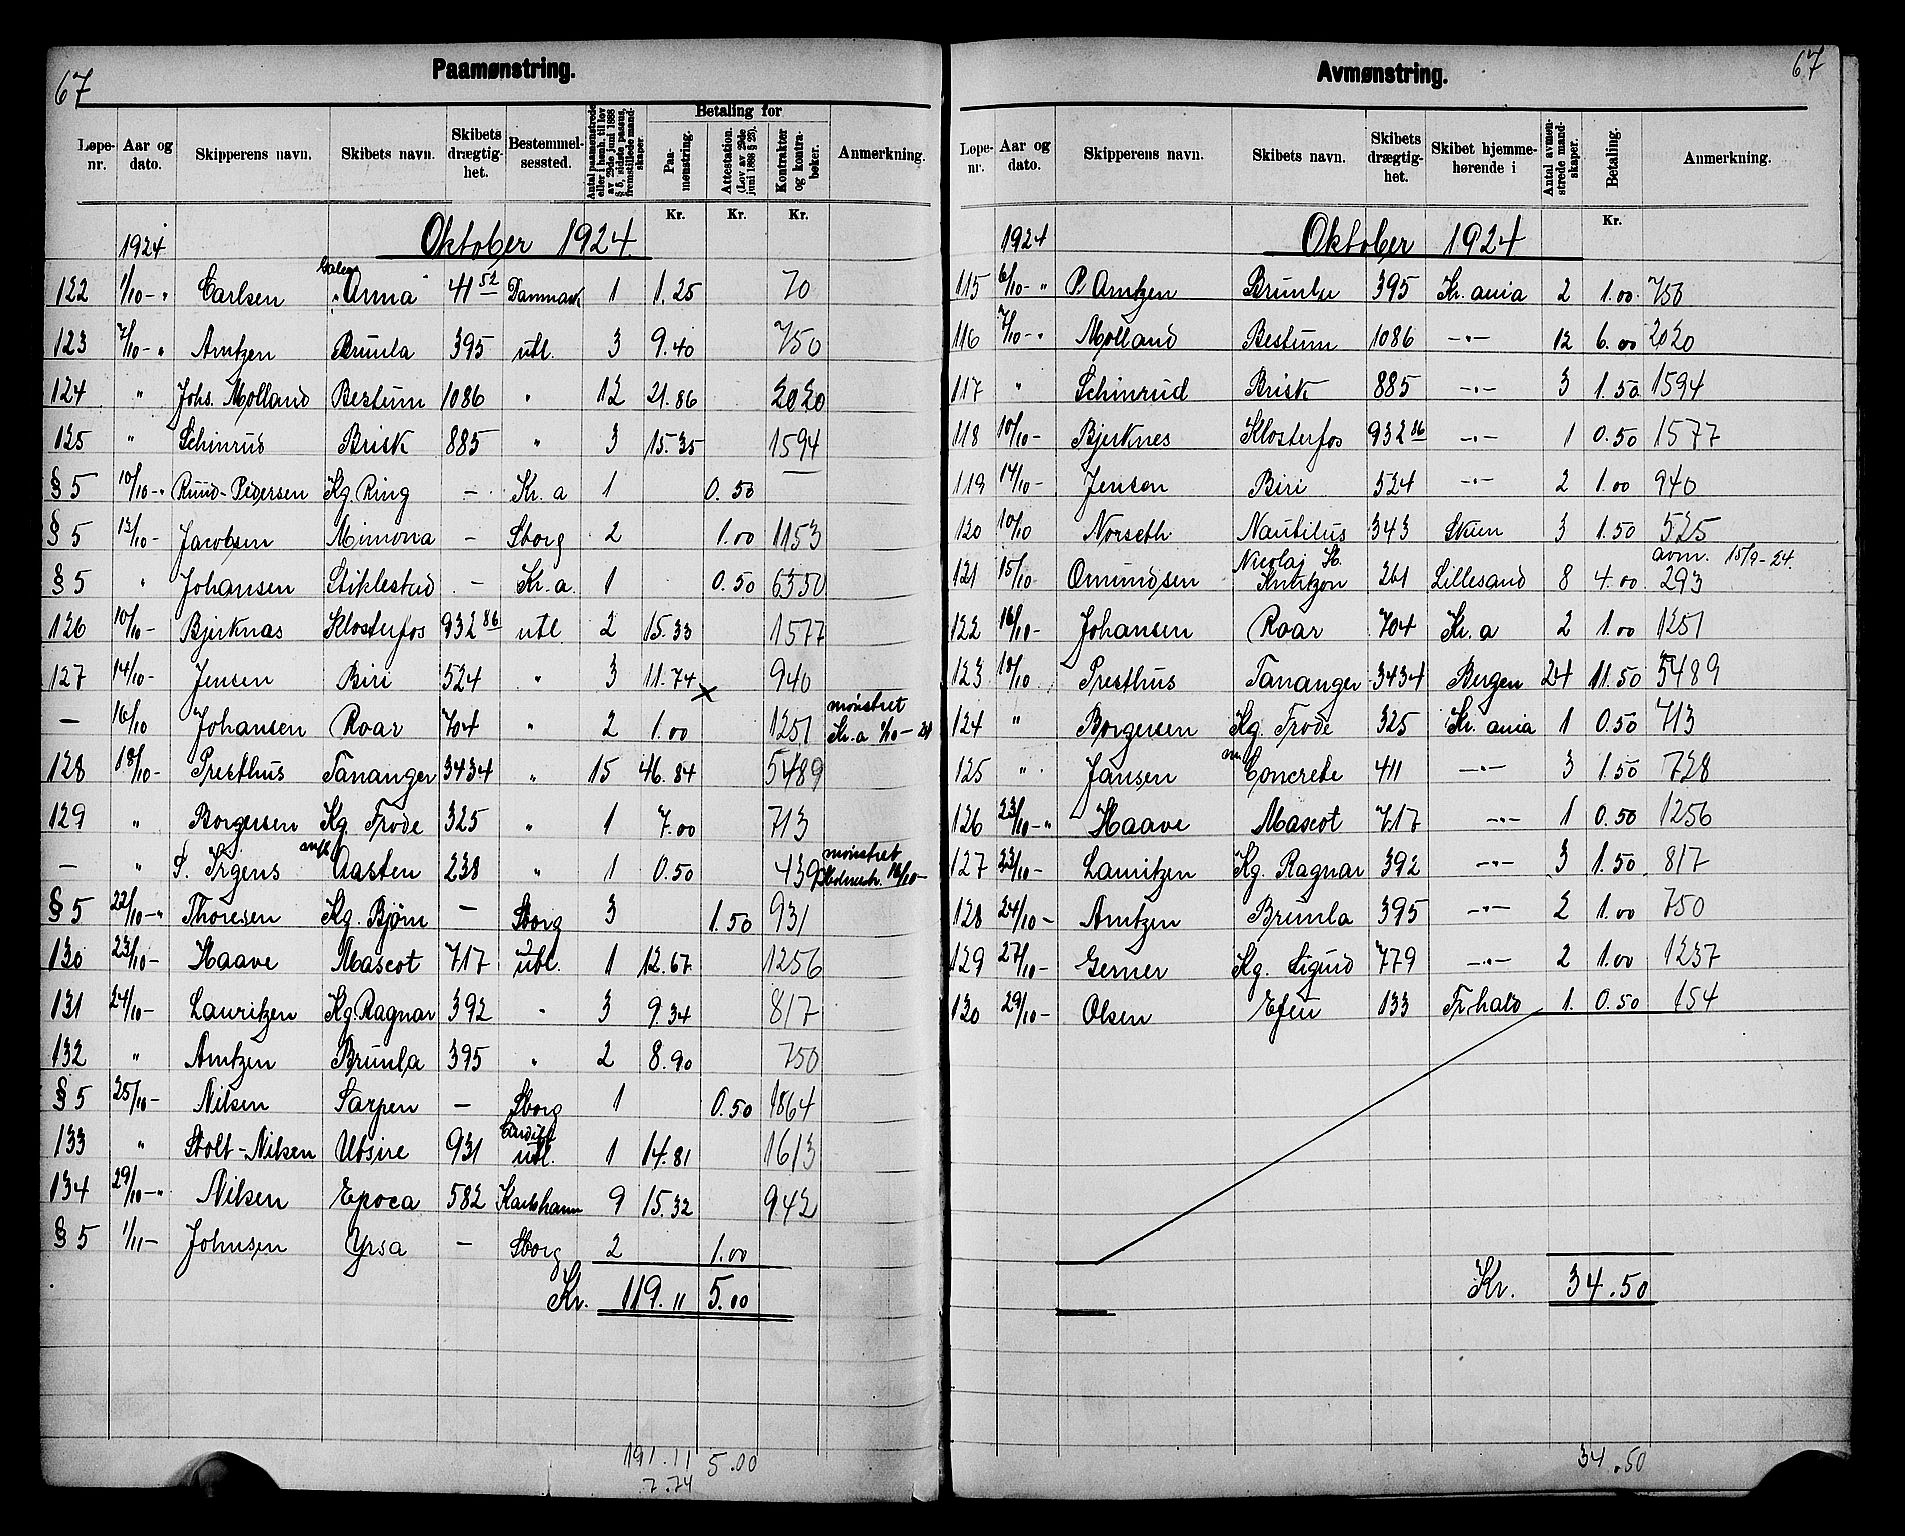 67
Paamønstring.
Løpe-nr. | Aar og dato. | Skipperens navn. | Skibets navn. | Skibets drægtighet. | Bestemmelsessted. | Antal paamønstrede eller i henh. til lov av 29de juni 1888 § 5, sidste passus, fremstillede mandskaper. | Betaling for Paamønstring. Kr. | Attestation. (Lov av 29de juni 1888 § 25). Kr. | Kontrakter og kontrabøker. Kr. | Anmerkning.
1924 Oktober 1924.
122 1/10-" Carlsen Galeas "Anna" 41 52 Danmark 1 1.25 70
123 7/10-" Arntzen Brunla 395 utl. 3 9.40 750
124 " Johs. Molland Bestum 1086 " 12 21.86 2020
125 " Schinrud Brisk 885 " 3 15.35 1594
§ 5 10/10-" Ruud-Pedersen Kg. Ring - Kr. a 1 0.50
§ 5 13/10- Jacobsen Mimona - Sborg 2 1.00 1153
§ 5 " Johansen Stiklestad - Kr. a. 1 0.50 6350
126 10/10- Bjerknæs Klosterfos 932 86 utl 2 15.33 1577
127 14/10- Jensen Biri 524 " 3 11.74 x 940
— 16/10 Johansen Roar 704 " 2 1.00 1251 mønstret Kr. a /10-24
128 18/10- Presthus Tananger 3434 " 15 46.84 5489
129 " Borgersen Kg. Frode 325 " 1 7.00 713
— " S. Irgens Aasten 238 " 1 0.50 439 mønstret 16/10-
§ 5 22/10-" Thoresen Kg. Bjørn - Sborg 3 1.50 931
130 23/10- Haave Mascot 717 utl. 1 12.67 1256
131 24/10- Lauritzen Kg. Ragnar 392 " 3 9.34 817
132 " Arntzen Brunla 395 " 2 8.90 750
§ 5 25/10- Nilsen Sarpen - Sborg 1 0.50 1864
133 " Stolt-Nilsen Utsire 931 Cardiff utl. 1 14.81 1613
134 29/10-" Nilsen Epoca 582 Karlshamn 9 15.32 942
§ 5 1/11- Johnsen Yrsa - Sborg 2 1.00
Kr. 119.11 5.00
191.11 5.00
7.74
67
Avmønstring.
Løpe-nr. | Aar og dato. | Skipperens navn. | Skibets navn. | Skibets drægtighet. | Skibet hjemmehørende i | Antal avmønstrede mandskaper. | Betaling. Kr. | Anmerkning.
1924 Oktober 1924
115 6/10-" P. Arntzen Brunla 395 Kr. ania 2 1.00 750
116 7/10-" Molland Bestum 1086 -"- 12 6.00 2020
117 " Schinrud Brisk 885 -"- 3 1.50 1594
118 10/10- Bjerknes Klosterfos 932 86 -"- 1 0.50 1577
119 14/10- Jensen Biri 524 -"- 2 1.00 940
120 10/10 Norseth Nautilus 343 Skien 3 1.50 525
121 15/10 Omundsen Nicolaj H. Knutzon 261 Lillesand 8 4.00 293 avm. 15/9-24.
122 16/10- Johansen Roar 704 Kr. a 2 1.00 1251
123 18/10 Presthus Tananger 3434 Bergen 24 11.50 5489
124 " Borgersen Kg. Frode 325 Kr. ania 1 0.50 713
125 " Jansen Concrete 411 -"- 3 1.50 728
126 23/10-" Haave Mascot 717 -"- 1 0.50 1256
127 23/10- Lauritzen Kg. Ragnar 392 -"- 3 1.50 817
128 24/10- Arntzen Brunla 395 -"- 2 1.00 750
129 27/10- Gerner Kg. Sigurd 779 -"- 2 1.00 1237
130 29/10- Olsen Efeu 133 Fr.hald 1. 0.50 154
Kr. 34.50
34.50